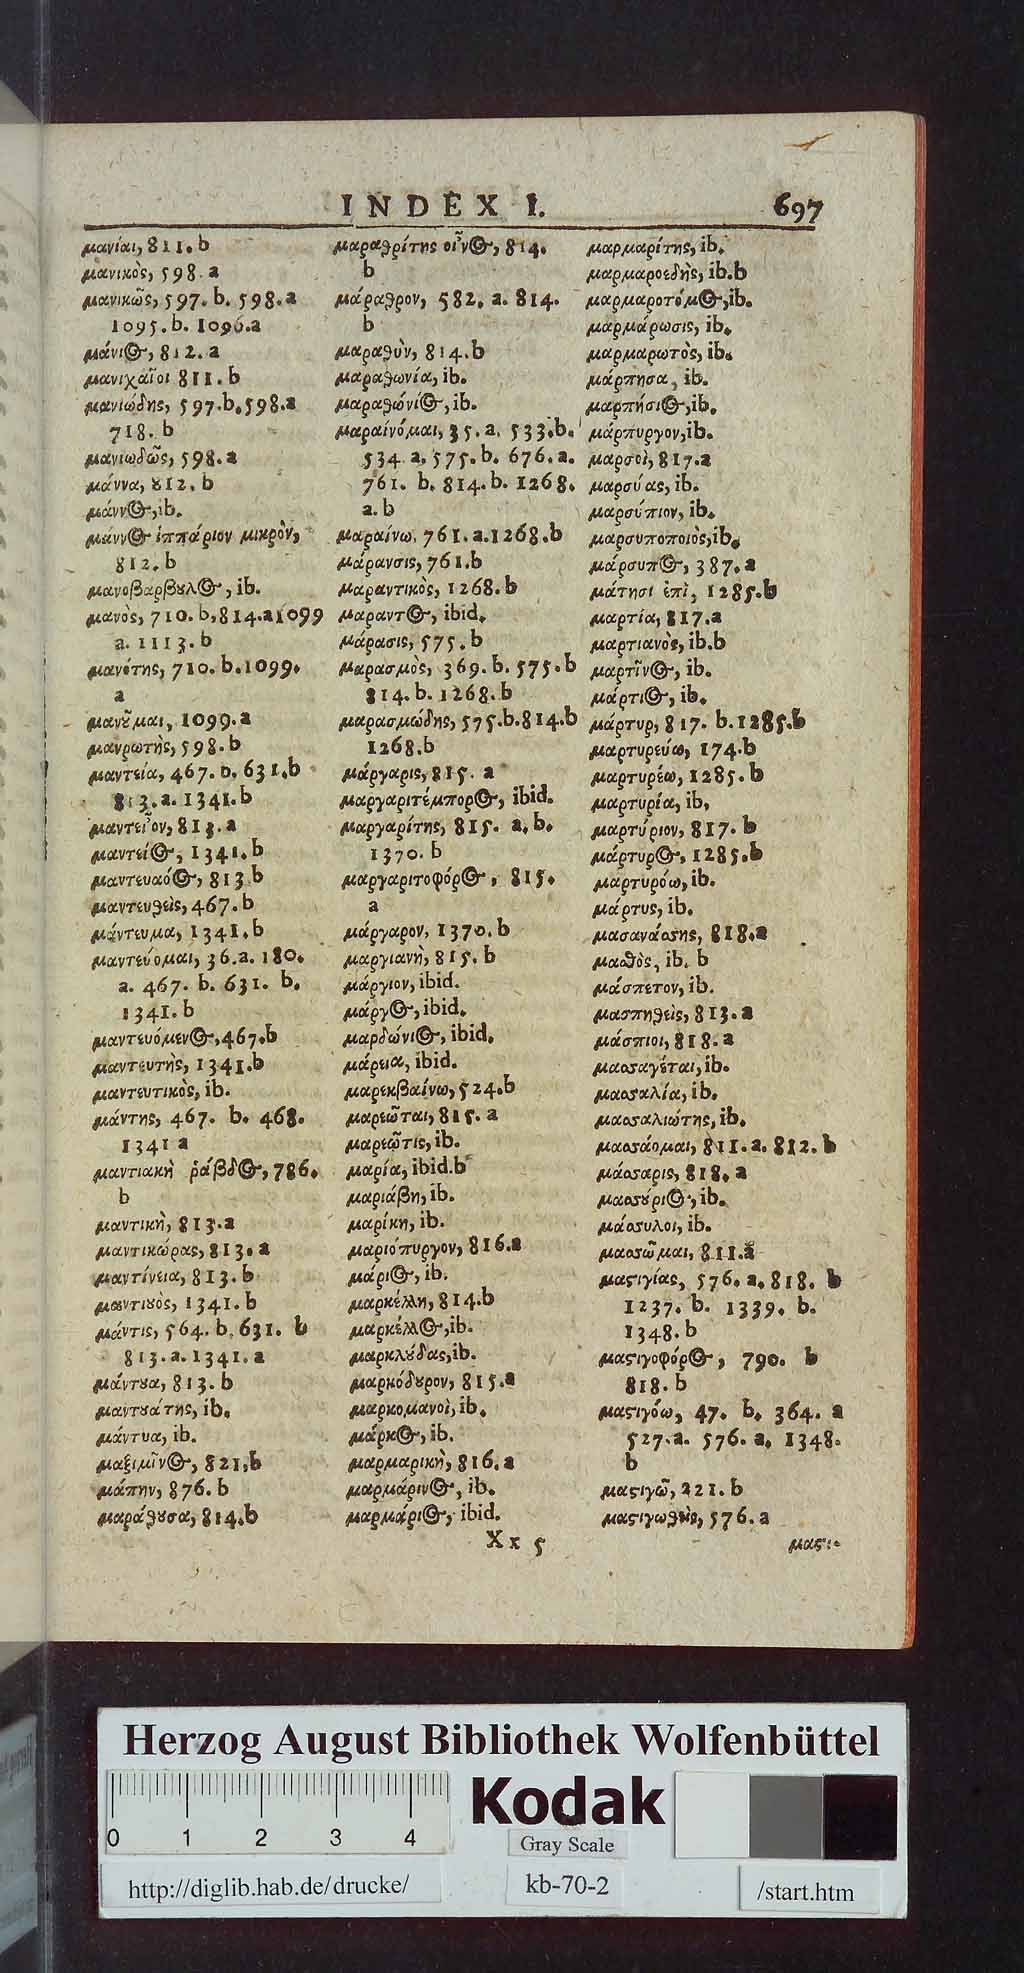 INDEX I. 697
μανίαι, 811. b
μανικὸς, 598. a
μανικῶς, 597. b. 598. a
1095. b. 1096. a
μάνιος, 812. a
μανιχαῖοι 811. b
μανιώδης, 597. b. 598. a
718. b
μανιωδῶς, 598. a
μάννα, 812. b
μάννος, ib.
μάννος ἱππάριον μικρὸν,
812. b
μανοβαρβȣλος, ib.
μανὸς, 710. b, 814. a 1099
a. 1113. b
μανότης, 710. b. 1099.
a
μανȣ͂μαι, 1099. a
μανρωτὴς, 598. b
μαντεία, 467. b. 631. b
813. a. 1341. b
μαντεῖον, 813. a
μαντεῖος, 1341. b
μαντευαόος, 813 b
μαντευθεὶς, 467. b
μάντευμα, 1341. b
μαντεύομαι, 36. a. 180.
a. 467. b. 631. b.
1341. b
μαντευόμενος, 467. b
μαντευτὴς, 1341. b
μαντευτικὸς, ib.
μάντης, 467. b. 468.
1341 a
μαντιακὴ ῥάβδος, 786.
b
μαντικὴ, 813. a
μαντικώρας, 813. a
μαντίνεια, 813. b
μαντιȣὸς, 1341. b
μάντις, 564. b. 631. b
813. a. 1341. a
μάντȣα, 813. b
μαντȣάτης, ib.
μάντυα, ib.
μαξιμῖνος, 821, b
μάπην, 876. b
μαράθȣσα, 814. b
μαραθρίτης οἶνος, 814.
b
μάραθρον, 582. a. 814.
b
μαραθὺν, 814. b
μαραθωνία, ib.
μαραθώνιος, ib.
μαραίνόμαι, 35. a. 533. b.
534 a. 575. b. 676. a.
761. b. 814. b. 1268.
a. b
μαραίνω, 761. a. 1268. b
μάρανσις, 761. b
μαραντικὸς, 1268. b
μαραντος, ibid.
μάρασις, 575. b
μαρασμὸς, 369. b. 575. b
814. b. 1268. b
μαρασμώδης, 575. b. 814. b
1268. b
μάργαρις, 815. a
μαργαριτέμπορος, ibid.
μαργαρίτης, 815. a. b.
1370. b
μαργαριτοφόρος, 815.
a
μάργαρον, 1370. b
μαργιανὴ, 815. b
μάργιον, ibid.
μάργος, ibid.
μαρδώνιος, ibid.
μάρεια, ibid.
μαρεκβαίνω, 524. b
μαρεῶται, 815. a
μαρεῶτις, ib.
μαρία, ibid. b
μαριάβη, ib.
μαρίκη, ib.
μαριόπυργον, 816. a
μάριος, ib.
μαρκέλλη, 814. b
μαρκέλλος, ib.
μαρκλȣ́δας, ib.
μαρκόδȣρον, 815. a
μαρκομανοὶ, ib.
μάρκος, ib.
μαρμαρικὴ, 816. a
μαρμάρινος, ib.
μαρμάριος, ibid.
μαρμαρίτης, ib.
μαρμαροεδὴς, ib. b
μαρμαροτόμος, ib.
μαρμάρωσις, ib.
μαρμαρωτὸς, ib.
μάρπησα, ib.
μαρπήσιος, ib.
μάρπυργον, ib.
μαρσοὶ, 817. a
μαρσύας, ib.
μαρσύπιον, ib.
μαρσυποποιὸς, ib.
μάρσυπος, 387. a
μάτησι ἐπὶ, 1285. b
μαρτία, 817. a
μαρτιανὸς, ib. b
μαρτῖνος, ib.
μάρτιος, ib.
μάρτυρ, 817. b. 1285. b
μαρτυρεύω, 174. b
μαρτυρέω, 1285. b
μαρτυρία, ib,
μαρτύριον, 817. b
μάρτυρος, 1285. b
μαρτυρόω, ib.
μάρτυς, ib.
μασανάσσης, 818. a
μασθὸς, ib. b
μάσπετον, ib.
μασπηθεὶς, 813. a
μάσπιοι, 818. a
μασσαγέται, ib.
μασσαλία, ib.
μασσαλιώτης, ib.
μασσάομαι, 811. a. 812. b
μάσσαρις, 818. a
μασσȣ́ριος, ib.
μάσσυλοι, ib.
μασσῶμαι, 811. a
μαςιγίας, 576. a. 818. b
1237. b. 1339. b.
1348. b
μαςιγοφόρος, 790. b
818. b
μαςιγόω, 47. b. 364. a
527. a. 576. a. 1348.
b
μαςιγῶ, 221. b
μαςιγωθεὶς, 576. a
Xx 5 μαςι-
Herzog August Bibliothek Wolfenbüttel
0 1 2 3 4
Kodak
Gray Scale
http://diglib.hab.de/drucke/ kb-70-2 /start.htm